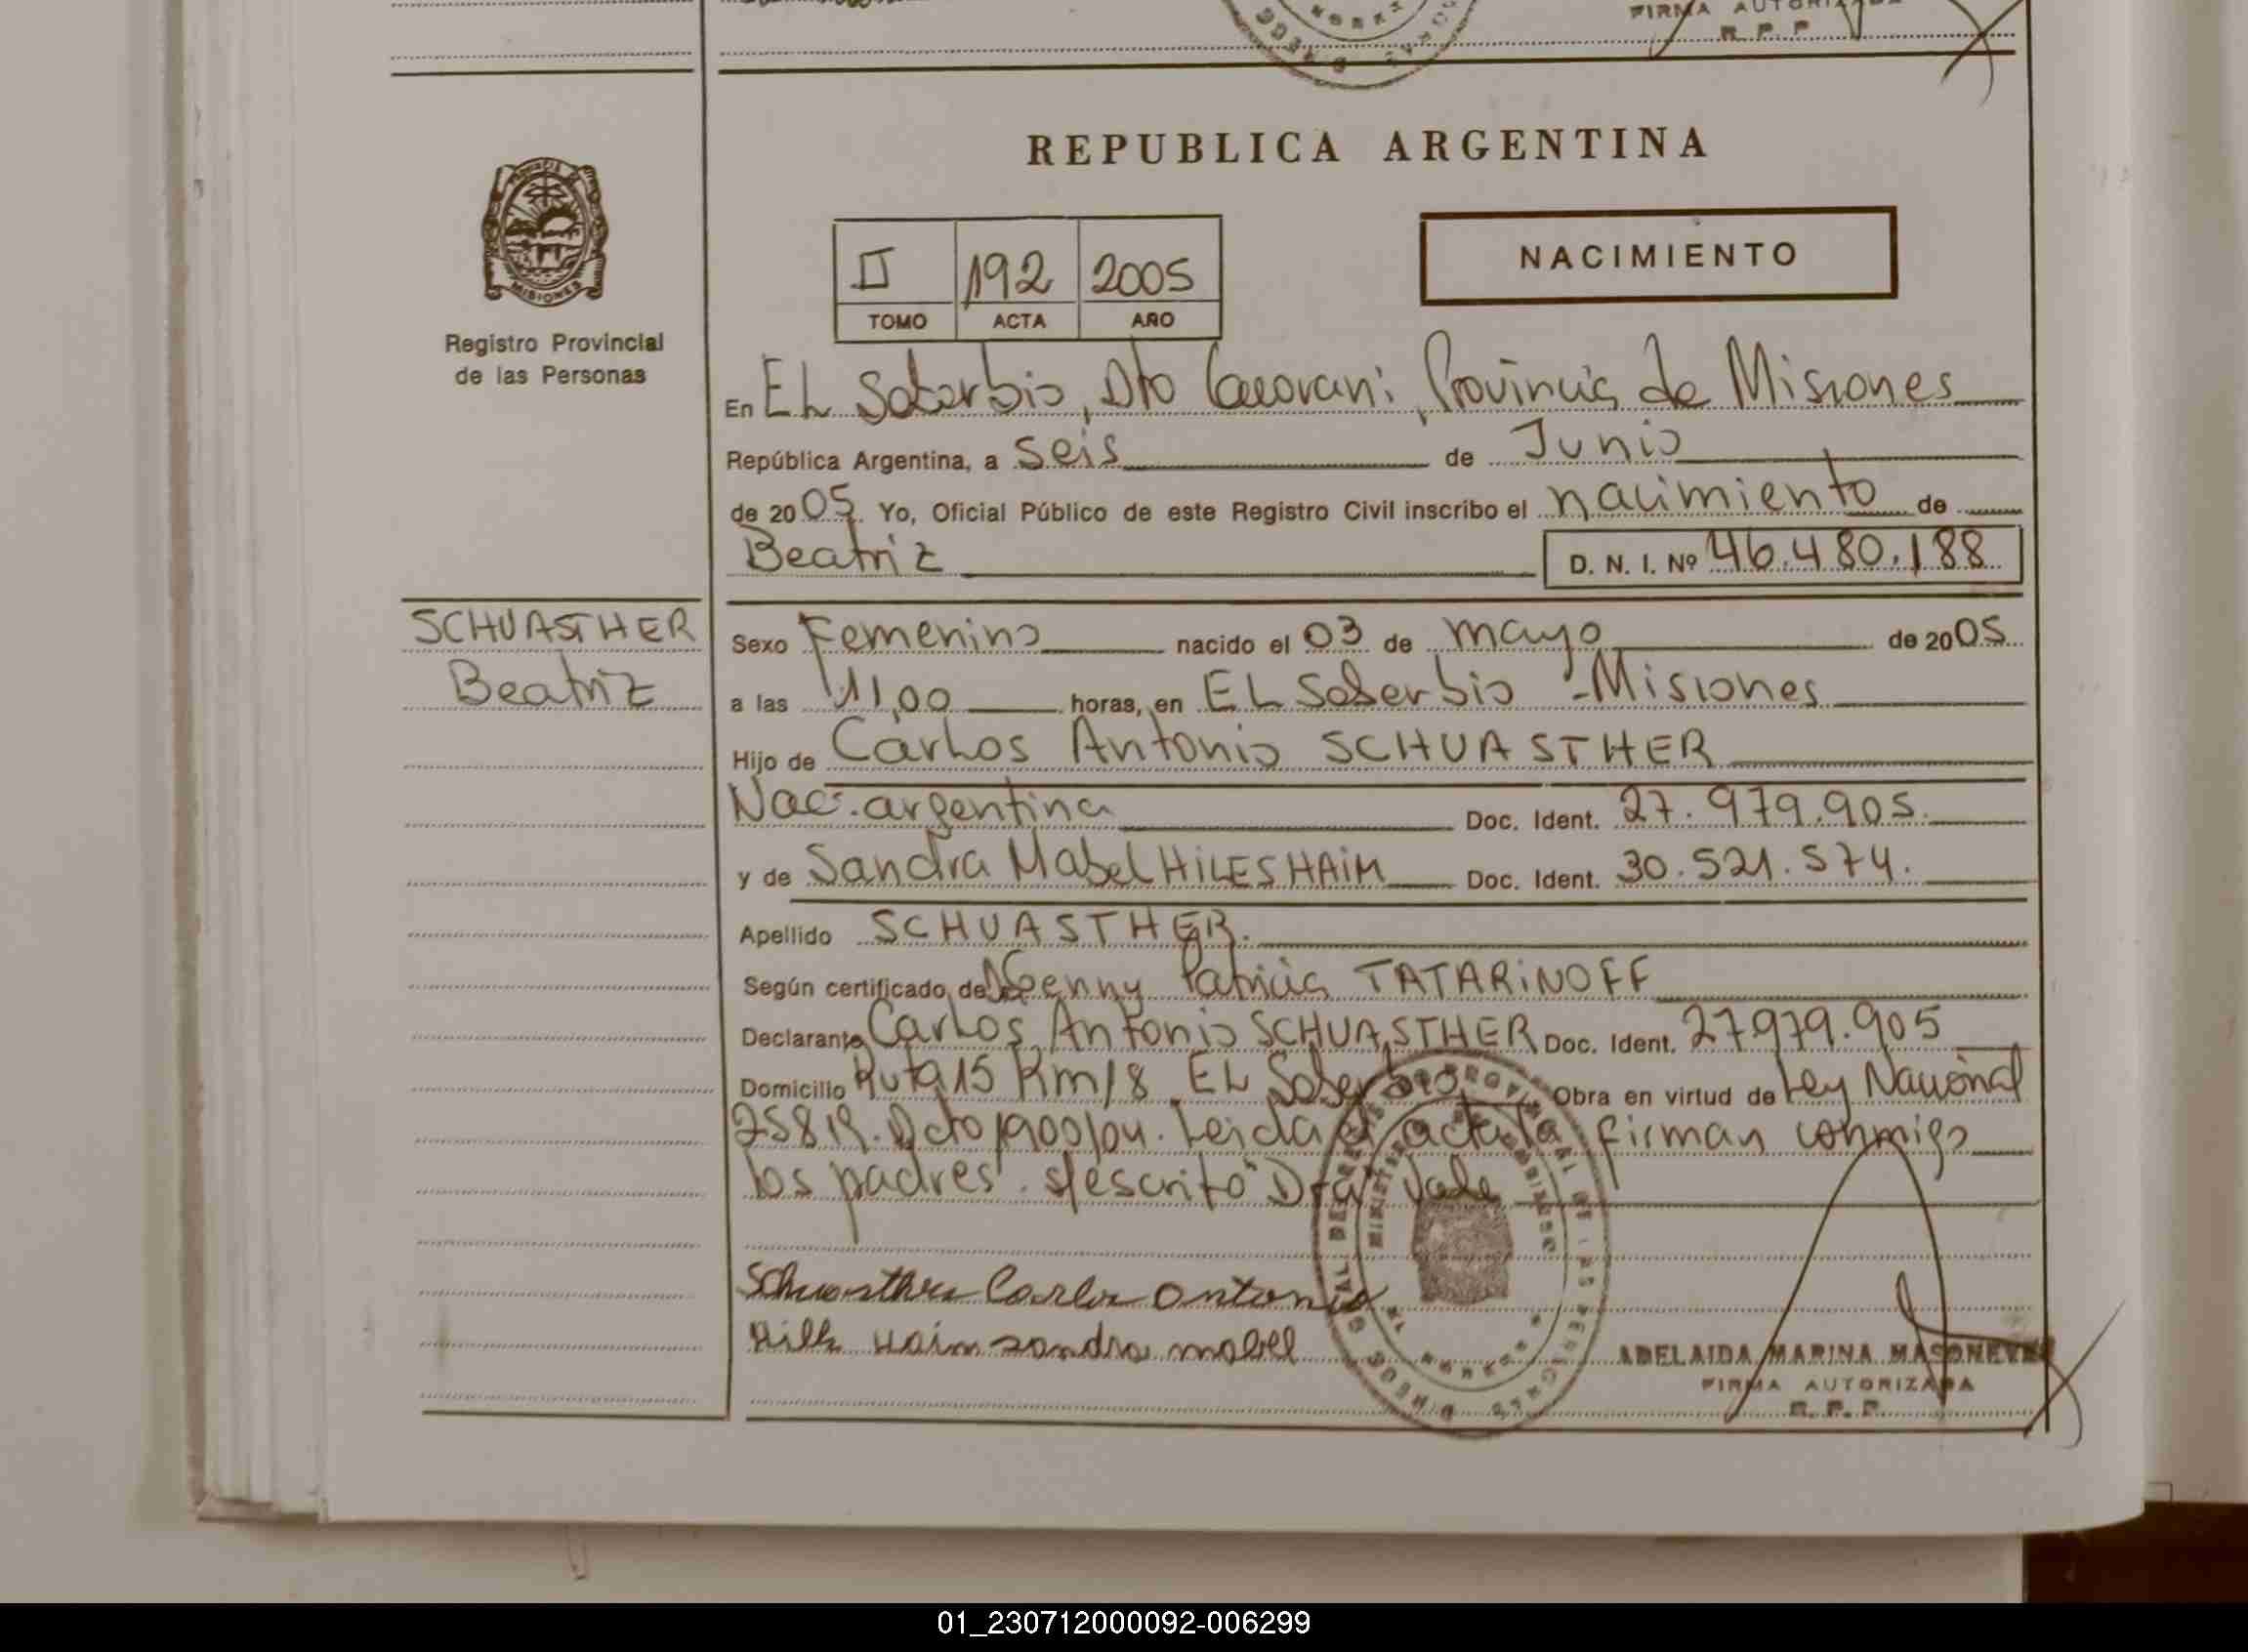 FIRMA AUTORIZADA
R. P. P.
REPUBLICA ARGENTINA
NACIMIENTO
II 192 2005
TOMO ACTA AÑO
MISIONES
Registro Provincial
de las Personas
En EL Soberbio, Dto Guarani, Provincia de Misiones
República Argentina, a seis de Junio
de 2005 Yo, Oficial Público de este Registro Civil inscribo el nacimiento de
Beatriz D. N. I. Nº 46.480.188
SCHUASTHER
Beatriz
Sexo Femenino nacido el 03 de mayo de 2005
a las 11,00 horas, en EL Soberbio - Misiones
Hijo de Carlos Antonio SCHUASTHER
Nac. argentina Doc. Ident. 27.979.905
y de Sandra Mabel HILESHAIM Doc. Ident. 30.521.574.
Apellido SCHUASTHER.
Según certificado de Patricia TATARINOFF
Declarante Carlos Antonio SCHUASTHER Doc. Ident. 27979.905
Domicilio Ruta 15 Km/8 EL Soberbio Obra en virtud de Ley Nacional
25819. Dcto 1900/04. Leida el acta la firman conmigo
los padres. s/escrito "Dra" Vale
Schuasther Carlos Antonio
Hilh Haim sandra mabel
ADELAIDA MARINA
FIRMA AUTORIZADA
R. P. P.
01_230712000092-006299